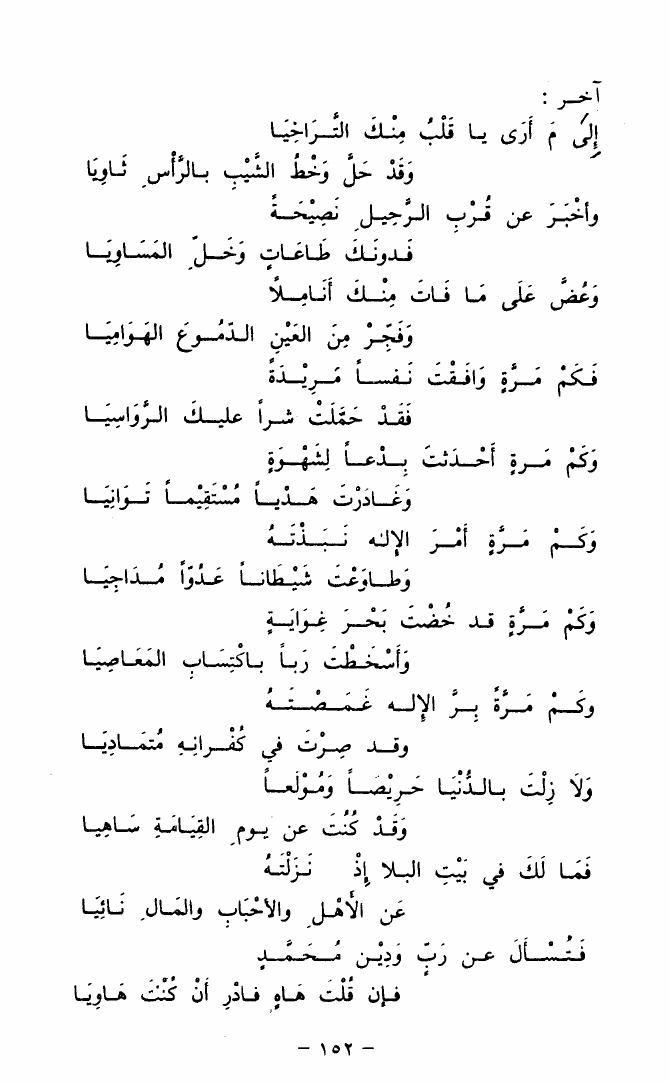 آخر :
إِلَى مَ أَرَى يا قَلْبُ مِنْكَ التَّرَاخِيَا
وَقَدْ حَلَّ وَخْطُ الشَّيْبِ بالرَّأْسِ ثَاوِيَا
وأَخْبَرَ عن قُرْبِ الرَّحِيلِ نَصِيْحَةً
فَدونَكَ طَاعَاتٍ وَخَلِّ المَسَاوِيَا
وَعُضَّ عَلَى مَا فَاتَ مِنْكَ أَنَامِلًا
وَفَجِّرْ مِنَ العَيْنِ الدّمُوعَ الهَوَامِيَا
فَكَمْ مَرَّةٍ وَافَقْتَ نَفساً مَرِيْدَةً
فَقَدْ حَمَّلَتْ شراً عليكَ الرَّوَاسِيَا
وَكَمْ مَرةٍ أَحْدَثْتَ بِدْعاً لِشَهْوَةٍ
وَغَادَرْتَ هَدْياً مُسْتَقِيْماً تَوَانِيَا
وَكَمْ مَرَّةٍ أَمْرَ الإِلهِ نَبَذْتَهُ
وَطَاوَعْتَ شَيْطَاناً عَدُوّاً مُدَاجِيَا
وَكَمْ مَرَّةٍ قد خُضْتَ بَحْرَ غِوَايَةٍ
وَأَسْخَطْتَ رَباً بِاكْتِسَابِ المَعَاصِيَا
وكَمْ مَرَّةً بِرَّ الإِلهِ غَمَصْتَهُ
وقد صِرْتَ في كُفْرانِهِ مُتَمَادِيَا
وَلَا زِلْتَ بالدُّنْيَا حَرِيْصاً وَمُوْلَعاً
وَقَدْ كُنْتَ عن يومِ القِيَامَةِ سَاهِيا
فَمَا لَكَ في بَيْتِ البلا إِذْ نَزَلْتَهُ
عَنِ الأَهْلِ والأَحْبَابِ والمَالِ نَائِيَا
فَتُسْأَلَ عن رَبٍّ وَدِيْنِ مُحَمَّدٍ
فإن قُلْتَ هَاهٍ فادْرِ أَنْ كُنْتَ هَاوِيَا
- ١٥٢ -